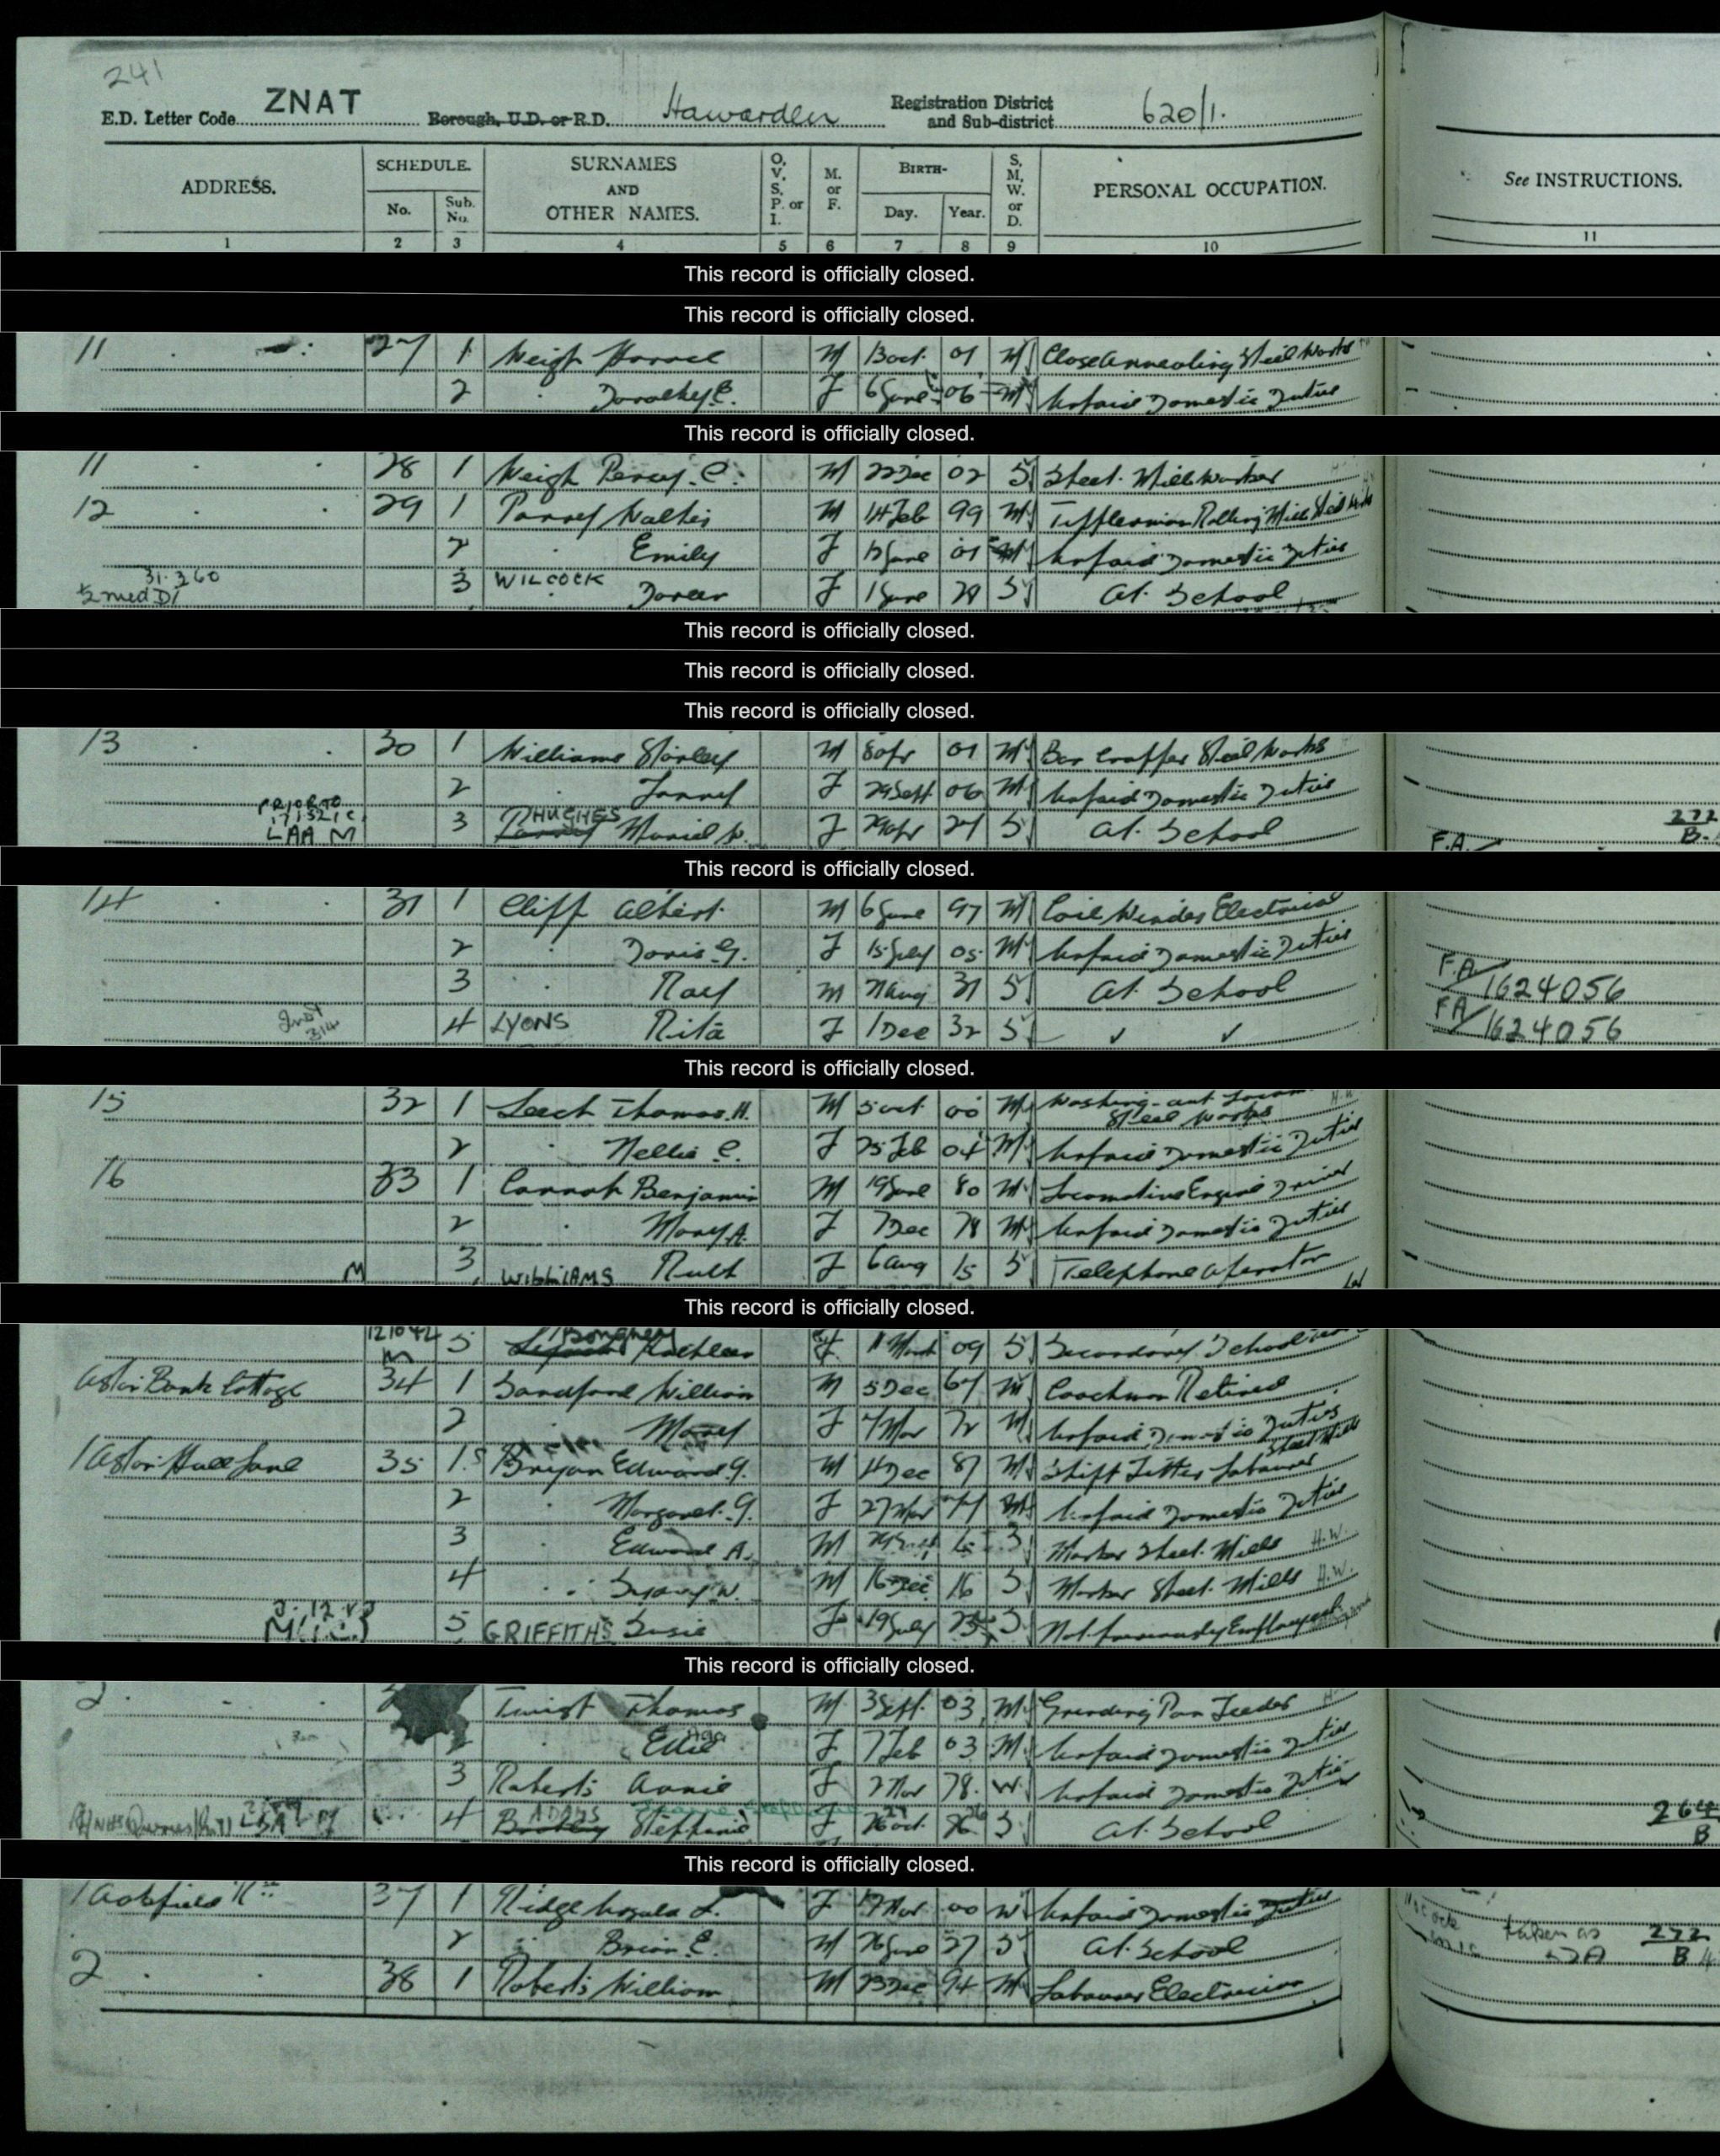 241
E.D. Letter Code ZNAT Borough, U.D. or R.D. Hawarden Registration District and Sub-district 620/1.
ADDRESS. SCHEDULE. No. Sub. No. SURNAMES AND OTHER NAMES. O, V, S, P. or I. M. or F. BIRTH- Day. Year. S, M, W. or D. PERSONAL OCCUPATION. See INSTRUCTIONS.
1 2 3 4 5 6 7 8 9 10 11
This record is officially closed.
This record is officially closed.
11 27 1 Weigh Horace M 13 Oct 01 M Close Annealing Steel Works
2 Dorothy E. F 6 June 06 M Unpaid Domestic Duties
This record is officially closed.
11 28 1 Weigh Percy. C. M 22 Dec 02 S Sheet Mill Worker
12 29 1 Parry Walter M 14 Feb 99 M Rolling Mill
2 Emily F June 01 M Unpaid Domestic Duties
3 WILCOCK Doreen F 1 June 28 S At School
This record is officially closed.
This record is officially closed.
This record is officially closed.
13 30 1 Williams Stanley M 8 Apr 01 M Bar Cropper Steel Works
2 F 29 Sept 06 M Unpaid Domestic Duties
PRIOR TO LAA M 3 HUGHES Parry Muriel F 29 Apr 27 S At School F.A. 272 B.
This record is officially closed.
14 31 1 Cliff Albert M 6 June 97 M Coil Winder Electrical
2 Doris G. F 15 July 05 M Unpaid Domestic Duties
3 Roy M Aug 31 S At School F.A 1624056
4 LYONS Rita F 1 Dec 32 S ✓ ✓ FA 1624056
This record is officially closed.
15 32 1 Leech Thomas. H. M 5 Oct 00 M Washing-out Steel Works
2 Nellie E. F 25 Feb 04 M Unpaid Domestic Duties
16 33 1 Connah Benjamin M 19 June 80 M Locomotive Engine Driver
2 Mary A. F 7 Dec 78 M Unpaid Domestic Duties
M 3 WILLIAMS Ruth F 6 Aug 15 S Telephone Operator
This record is officially closed.
121042 M 5 Kathleen F March 09 S Secondary School
Aston Bank Cottage 34 1 Sandford William M 5 Dec 67 M Coachman Retired
2 Mary F Mar 72 M Unpaid Domestic Duties
1 Aston Hall Lane 35 1 Bryan Edward. G. M Dec 87 M Shift Fitter Labourer Steel Mill
2 Margaret. G. F 27 Mar M Unpaid Domestic Duties
3 Edward A. M S Marker Sheet Mills H.W.
4 Sydney W. M 16 Dec 16 S Marker Sheet Mills H.W.
5 GRIFFITHS Susie F 19 July 23 S Not Employed
This record is officially closed.
2 Twist Thomas M 3 Sept. 03 M Grinding Pan Feeder
Ellis F 7 Feb 03 M Unpaid Domestic Duties
3 Roberts Annie F Mar 78 W Unpaid Domestic Duties
4 ADAMS F Oct S At School 264 B
This record is officially closed.
37 1 Ridge F Mar 00 W Unpaid Domestic Duties
2 Brian E. M 26 June 27 S At School taken as 272 B
2 38 1 Roberts William M 23 Dec 94 M Labourer Electrician